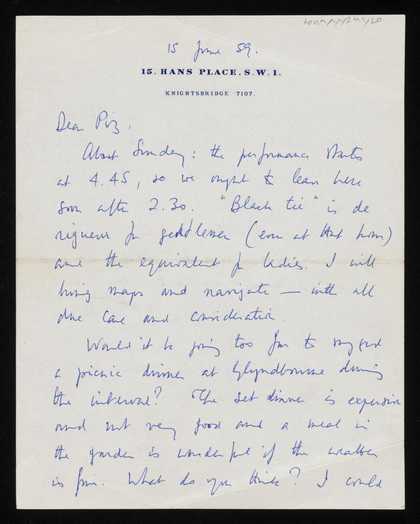 15 June 59.
15. HANS PLACE. S.W.1.
KNIGHTSBRIDGE 7107.
Dear Piz,
About Sunday: the performance starts
at 4.45, so we ought to leave here
soon after 2.30. "Black tie" is de
rigueur for gentlemen (even at that hour)
and the equivalent for ladies. I will
bring maps and navigate — with all
due care and consideration.
Would it be going too far to suggest
a picnic dinner at Glyndbourne during
the interval? The set dinner is expensive
and not very good and a meal in
the garden is wonderful if the weather
is fine. What do you think? I could